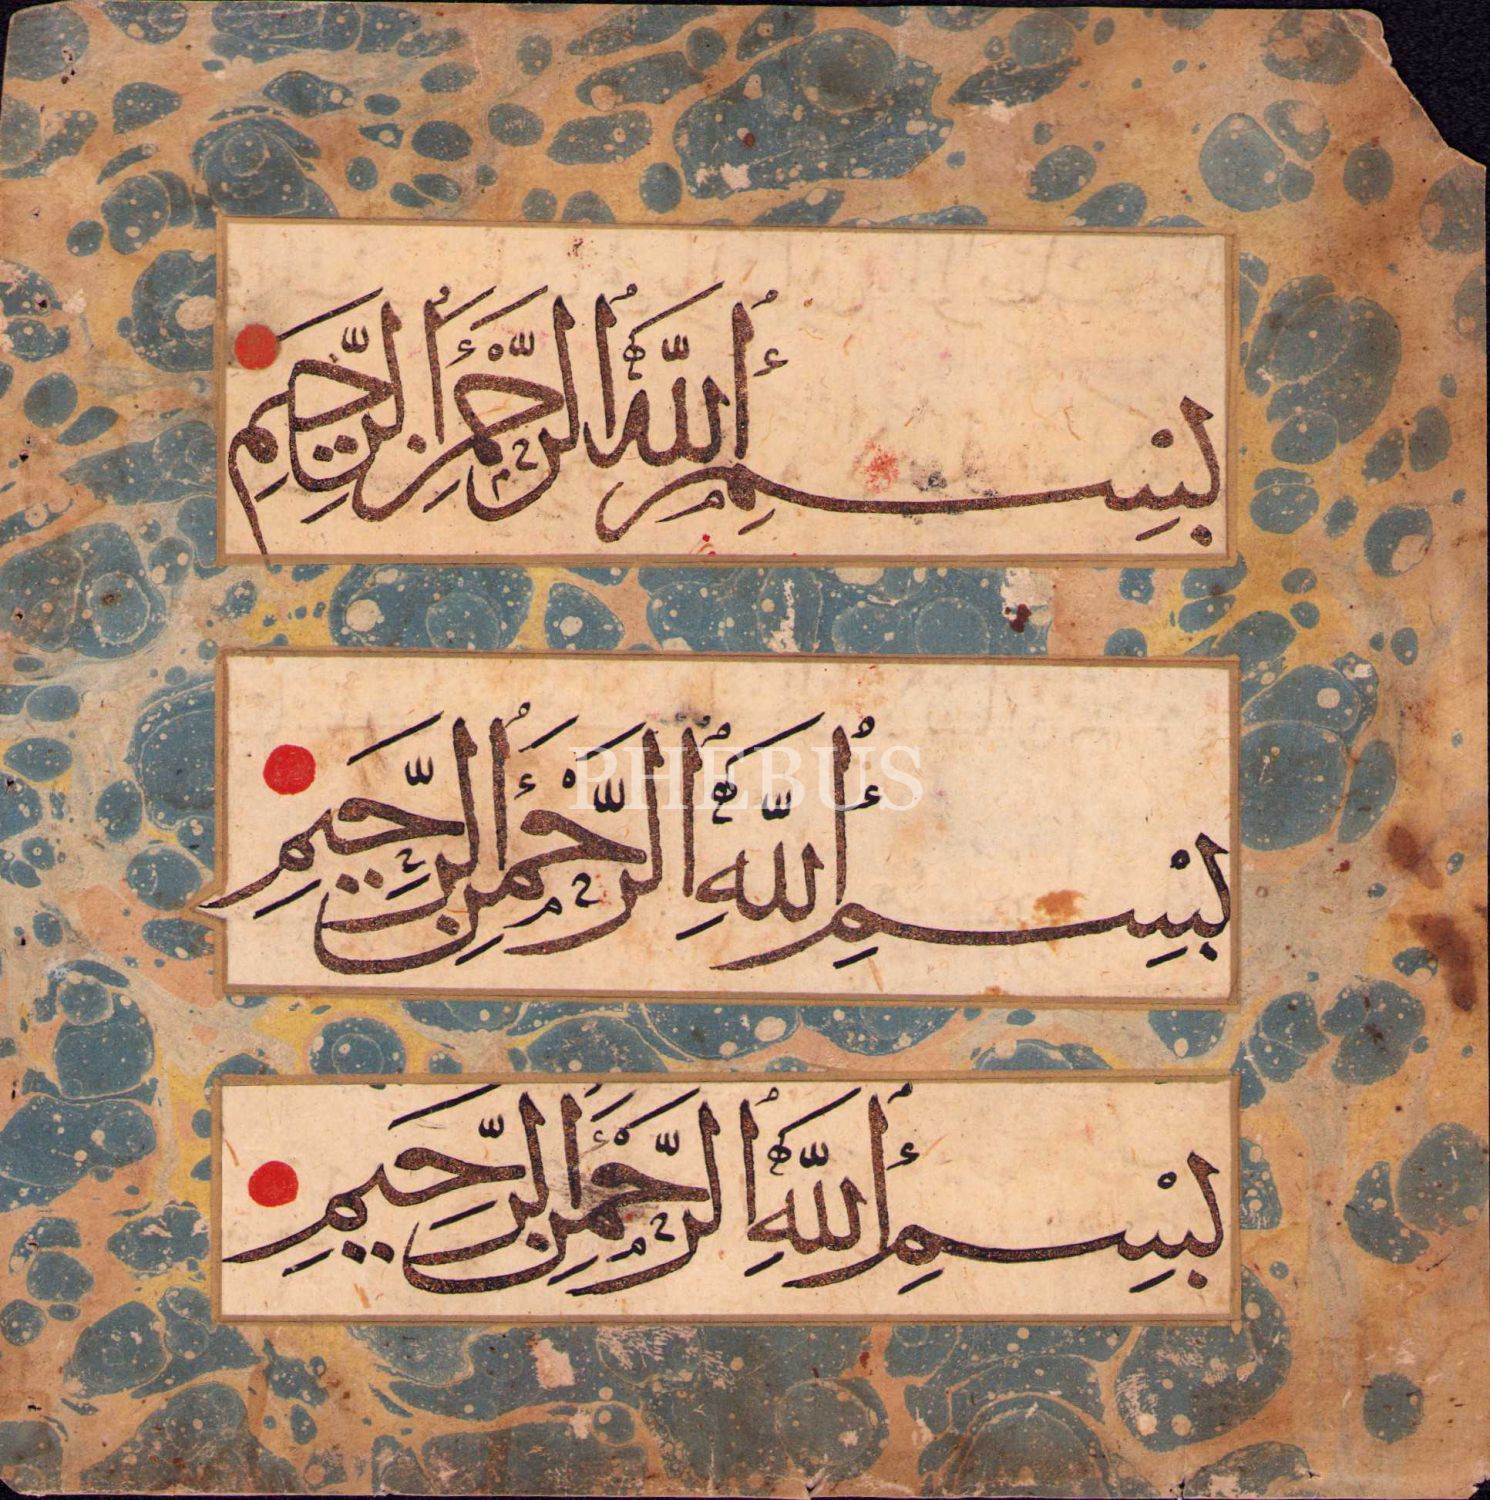 بِسْمِ اللّٰهِ الرَّحْمٰنِ الرَّحِيمِ
بِسْمِ اللّٰهِ الرَّحْمٰنِ الرَّحِيمِ
PHEBUS
بِسْمِ اللّٰهِ الرَّحْمٰنِ الرَّحِيمِ